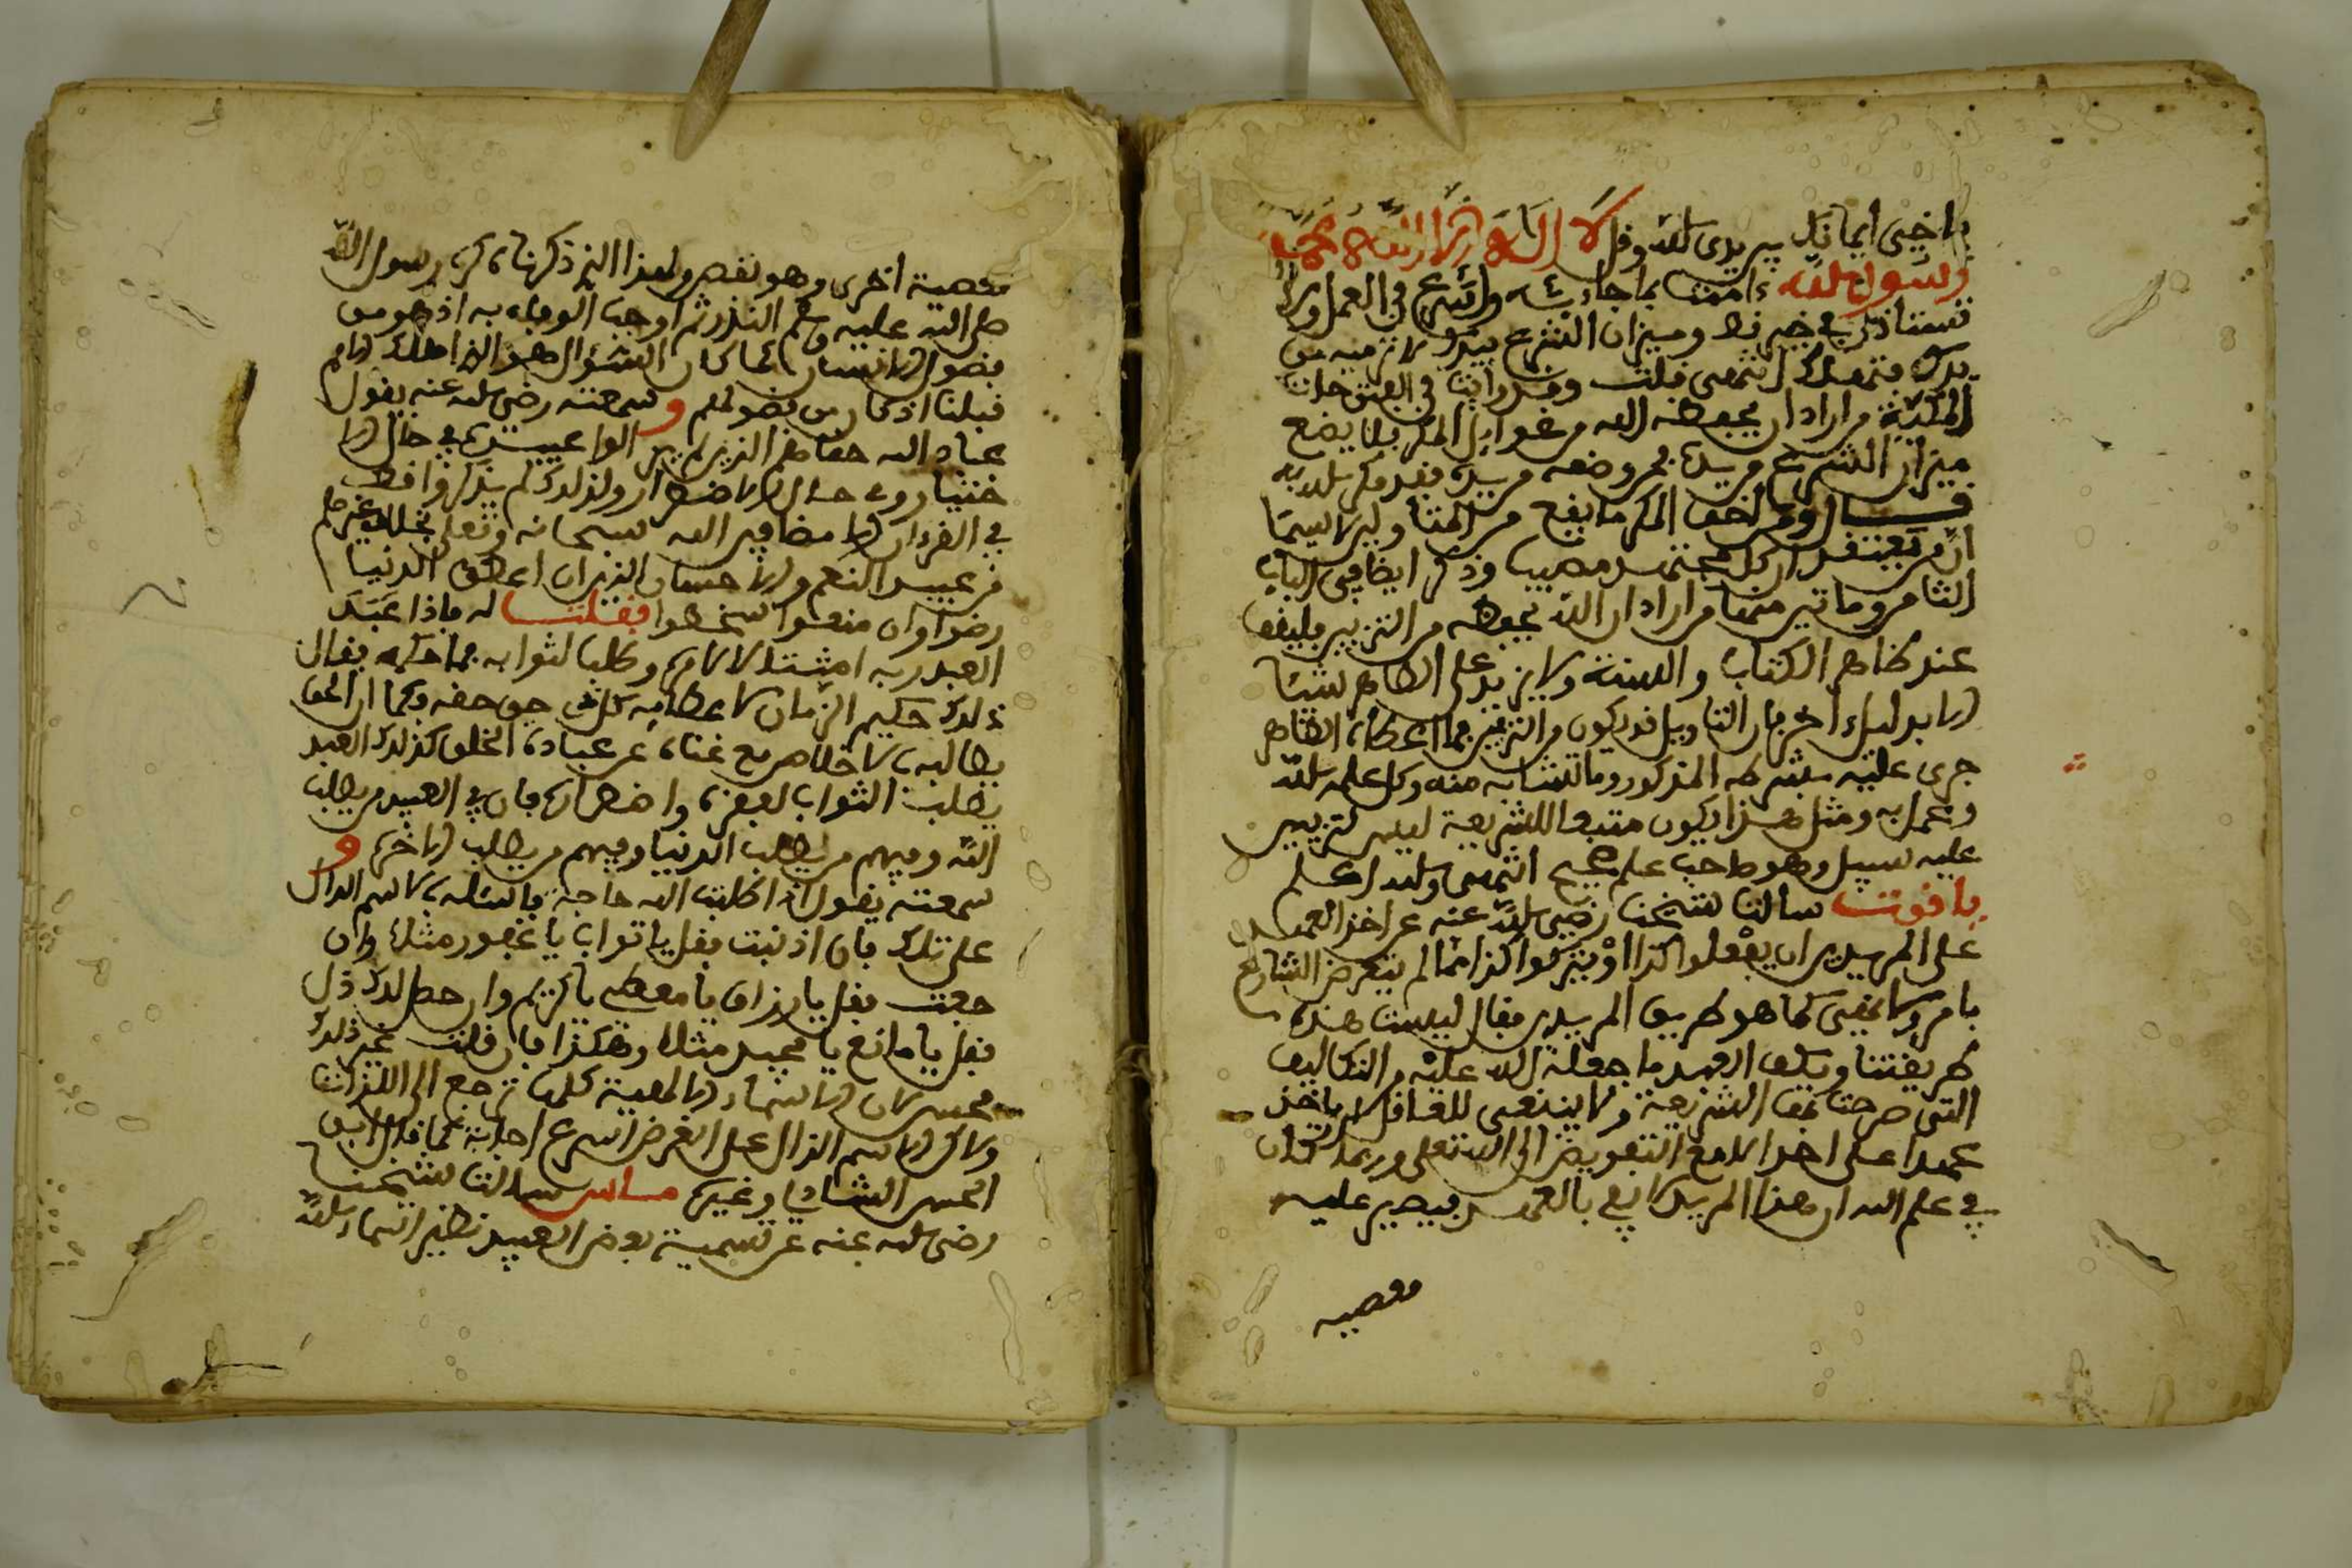 يا خي ايمانك بين يدي الله وقل لا اله الا الله محمد
رسول الله ءامنت بما جاء به واشرع في العمل ولا
تستأذن في خير قط وميزان الشرع بيدك لا ترميه من
يدك فتهلك انتهى قلت وقد رأيت في الفتوحات
المكية من اراد ان يحفظه الله من غوايل المكر فلا يضع
ميزان الشرع من يده فمن وضعه من يده فقد مكر الله به
قال ومن اخفى المكر ما يقع من المتاولين لا سيما
ان من يعتقد ان كل مجتهد مصيب وذكر ايضا في الباب
الثامن ومايتين منها من اراد ان الله يحفظه من التزيين فليقف
عند ظاهر الكتاب والسنة ولا يزيد على الظاهر شيئا
الا بدليل اخر فان التاويل قد يكون من التزيين فما اعطاه الظاهر
جرى عليه بشرطه المذكور وما تشابه منه وكل علمه لله
وعمل به ومثل هذا يكون متبعا للشريعة ليس لتزيين
عليه سبيل وهو صاحب علم صحيح انتهى والله اعلم
ياقوت سالت شيخنا رضي الله عنه عن اخذ العهد
على المريدين ان يفعلوا كذا او يتركوا كذا مما لم يتعرض الشارع
بامر ولا نهي كما هو طريق المريدين فقال ليست هذه
طريقتنا ويكفي العبد ما جعله الله عليه من التكاليف
التي صرحت بها الشريعة ولا ينبغي للعاقل ان ياخذ
عهدا على احد الا مع التفويض الى الله تعلى وربما كان
في علم الله ان هذا المريد لا يفي بالعهد فيصير عليه
معصيه
معصية اخرى وهو نقص ولهذا الذي ذكرناه كره رسول الله
صلى الله عليه وسلم النذر ثم اوجب الوفاء به اذ هو من
فضول الانسان كما كان السؤال هو الذي اهلك الامم
قبلنا اذ كان من فضولهم و سمعته رضي الله عنه يقول
عباد الله حقا هم الذين لم يزالوا عبيده في حال الا
ختيار وفي حال الاضطرار ولذلك لم يذكروا قط
في القرءان الا مضافين الله سبحانه وتعلى بخلاف غيرهم
من عبيد النعم والاحسان الذين ان اعطوا الدنيا
رضوا وان منعوا سخطوا فقلت له فاذا عَبَدَ
العبد ربه امتثالا لامره وطلبا لثوابه فما حكمه فقال
ذلك حكيم الزمان لاعطايه كل شي حق حقه وكما ان الحق
يطالبه بالاخلاص مع غناه عن عبادة الخلق كذلك العبد
يطلب الثواب لفقره واضطراره فان في العبيد من يطلب
الله وفيهم من يطلب الدنيا وفيهم من يطلب الاخرة و
سمعته يقول اذا طلبت الله حاجة فاسئله بالاسم الدال
على تلك فان اذنبت فقل يا تواب يا غفور مثلا وان
جعت فقل يا رزاق يا معطي يا كريم وان حصل لك ذل
فقل يا مانع يا مجيد مثلا وهكذا فان قلت غير ذلك
فحسن لان الاسماء الالهية كلها ترجع الى الذات
ولاكن الاسم الدال على الغرض اسرع اجابة كما قال ابو
الحسن الشاذلي وغيره ماس سالت شيخنا
رضي الله عنه عن تسمية بعض العبيد نظير اسماء الله